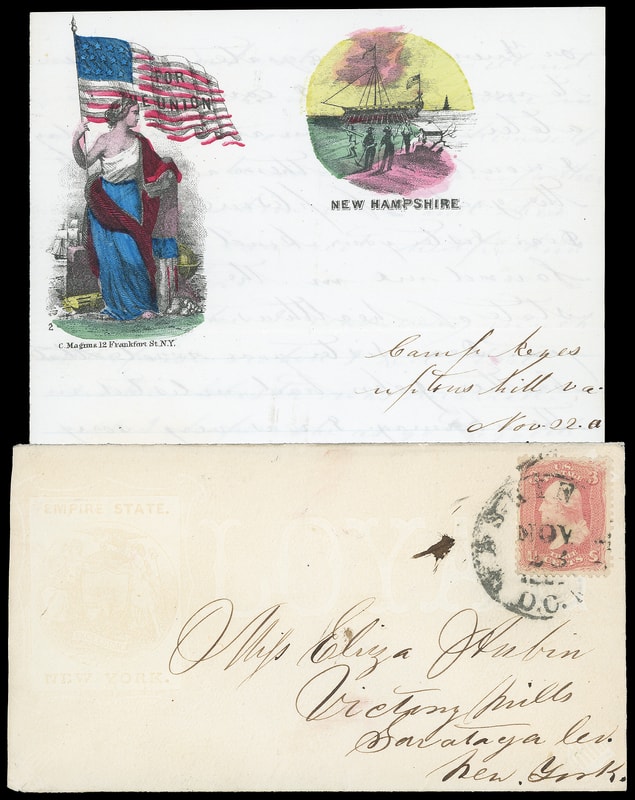 FOR
UNION
NEW HAMPSHIRE
2
C. Magnus 12 Frankfort St. N.Y.
Camp Keyes
uptons hill va.
Nov. 22. a
EMPIRE STATE.
LOYAL
NEW YORK.
NOV
23
D.C.
Miss Eliza Aubin
Victory Mills
Saratoga Co.
New. York.